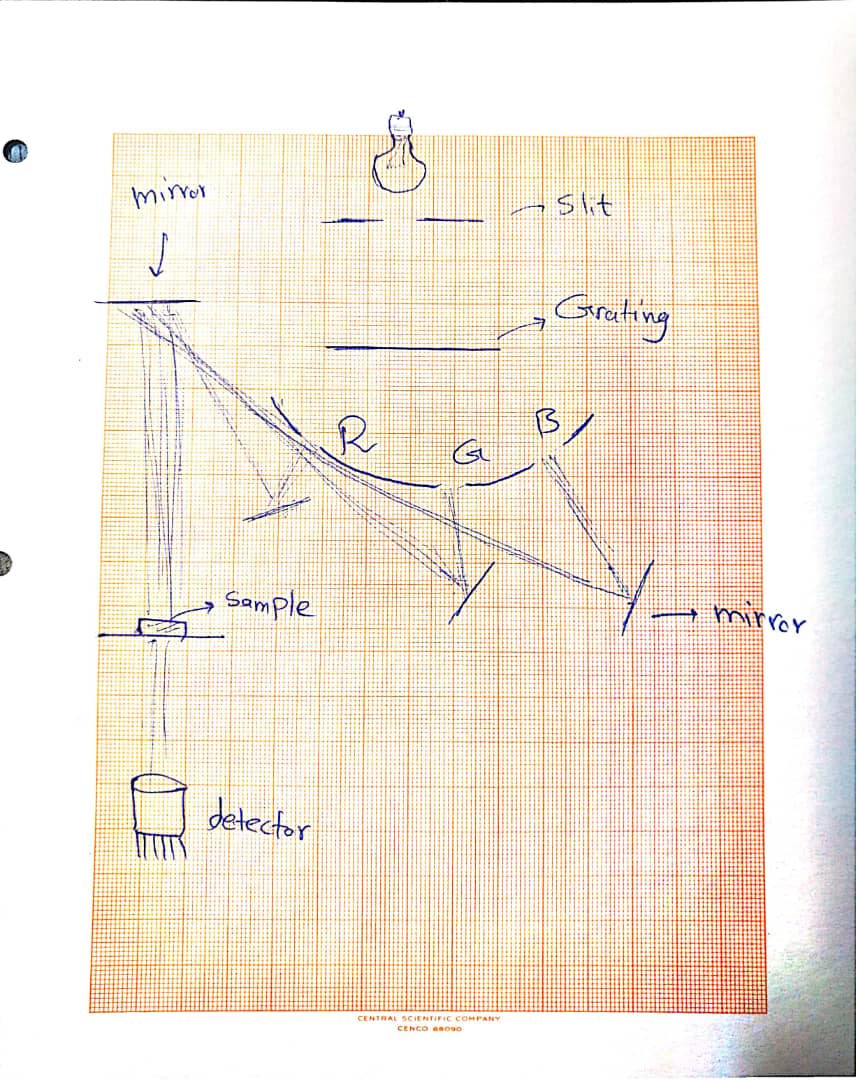 mirror
Slit
Grating
R
G
B
Sample
mirror
detector
CENTRAL SCIENTIFIC COMPANY
CENCO 88090